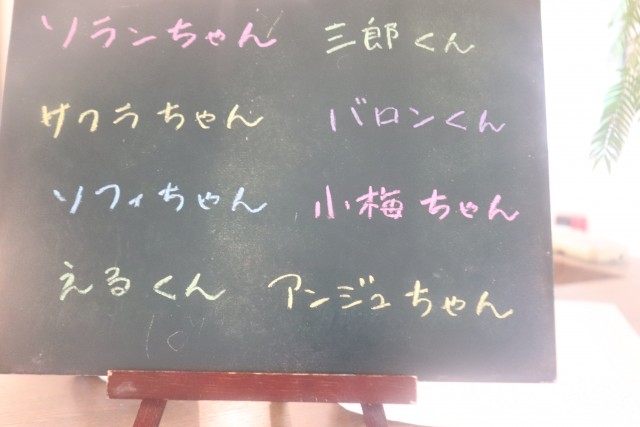 ソランちゃん 三郎くん
サクラちゃん バロンくん
ソフィちゃん 小梅ちゃん
えるくん アンジュちゃん